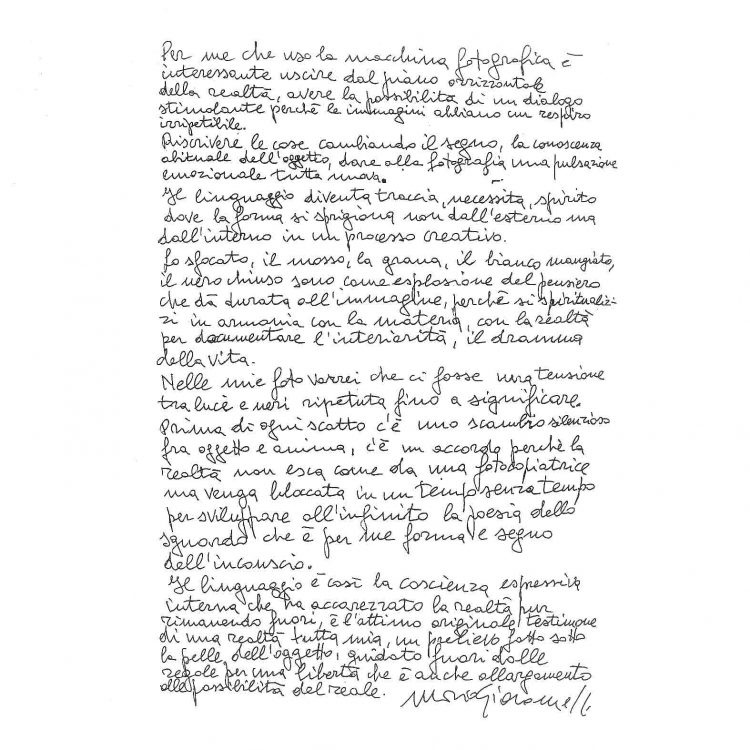 Per me che uso la macchina fotografica è
interessante uscire dal piano orizzontale
della realtà, avere la possibilità di un dialogo
stimolante perchè le immagini abbiano un respiro
irripetibile.
Riscrivere le cose cambiando il segno, la conoscenza
abituale dell'oggetto, dare alla fotografia una pulsazione
emozionale tutta nuova.
Il linguaggio diventa traccia, necessità, spirito
dove la forma si sprigiona non dall'esterno ma
dall'interno in un processo creativo.
Lo sfocato, il mosso, la grana, il bianco mangiato,
il nero chiuso sono come esplosione del pensiero
che dà durata all'immagine, perchè si spiritualiz-
zi in armonia con la materia, con la realtà
per documentare l'interiorità, il dramma
della vita.
Nelle mie foto vorrei che ci fosse una tensione
tra luce e neri ripetuta fino a significare.
Prima di ogni scatto c'è uno scambio silenzioso
fra oggetto e anima, c'è un accordo perchè la
realtà non esca come da una fotocopiatrice
ma venga bloccata in un tempo senza tempo
per sviluppare all'infinito la poesia dello
sguardo che è per me forma e segno
dell'inconscio.
Il linguaggio è così la coscienza espressiva
interna che ha accarezzato la realtà pur
rimanendo fuori, è l'attimo originale, testimone
di una realtà tutta mia, un prelievo fatto sotto
la pelle dell'oggetto, guidato fuori dalle
regole per una libertà che è anche allargamento
alle possibilità del reale. Mario Giacomelli